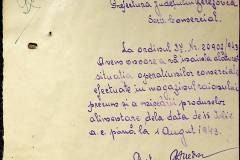 Prefectura Județului Cetatea
Serv. Comercial.
La ordinul Dv. Nr. 20902/943
Avem onoare a vă înainta alăturat
situația operațiunilor comerciale
efectuate în magazinul raionului
precum și a mișcării produselor
alimentare dela data de 15 Iulie
a.c. până la 1 August 1943.